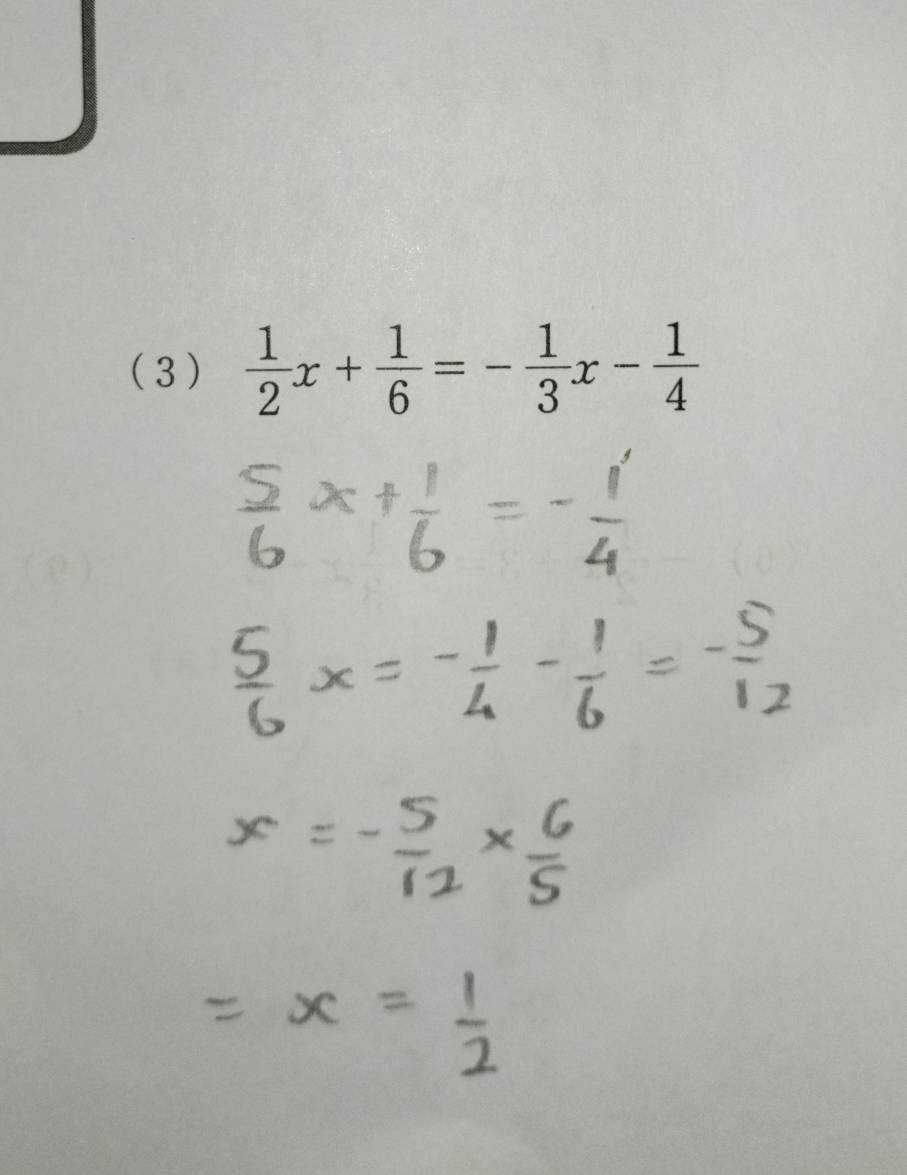 (3) 1/2 x + 1/6 = - 1/3 x - 1/4
5/6 x + 1/6 = - 1/4
5/6 x = - 1/4 - 1/6 = - 5/12
x = - 5/12 × 6/5
= x = 1/2